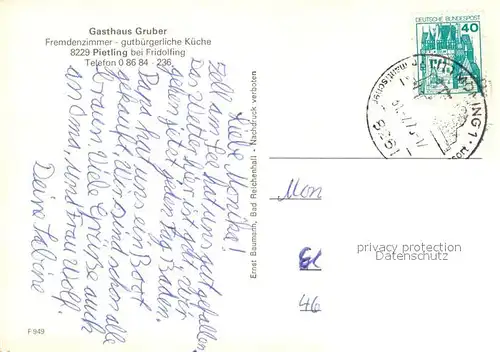 Gasthaus Gruber
Fremdenzimmer - gutbürgerliche Küche
8229 Pietling bei Fridolfing
Telefon 0 86 84 - 236
Liebe Monika!
Zell am See hat uns gut gefallen.
Das Wetter hier ist gut, wir
gehen jetzt jeden Tag Baden.
Papa hat uns ein Boot
gekauft. Wir sind schon alle
braun. Viele Grüße auch
an Oma, und Frau Wolf.
Deine Sabine
Ernst Baumann, Bad Reichenhall - Nachdruck verboten
DEUTSCHE BUNDESPOST
40
WAGING 1
1978
Mon
46
privacy protection
Datenschutz
F 949